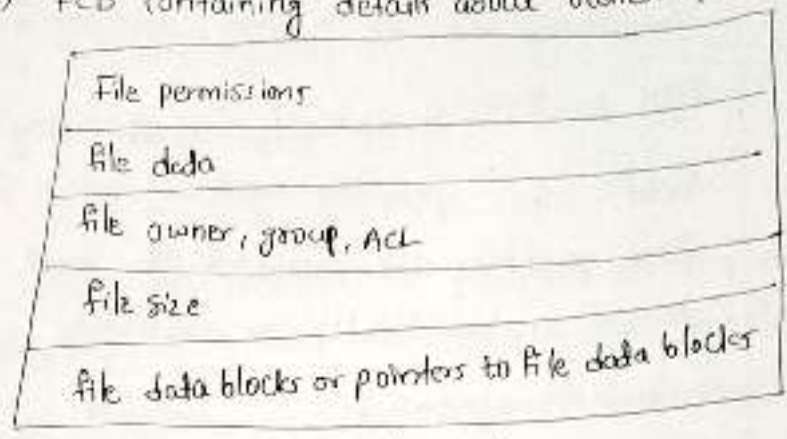 FCB containing details about
File permissions
file data
file owner, group, ACL
file size
file data blocks or pointers to file data blocks